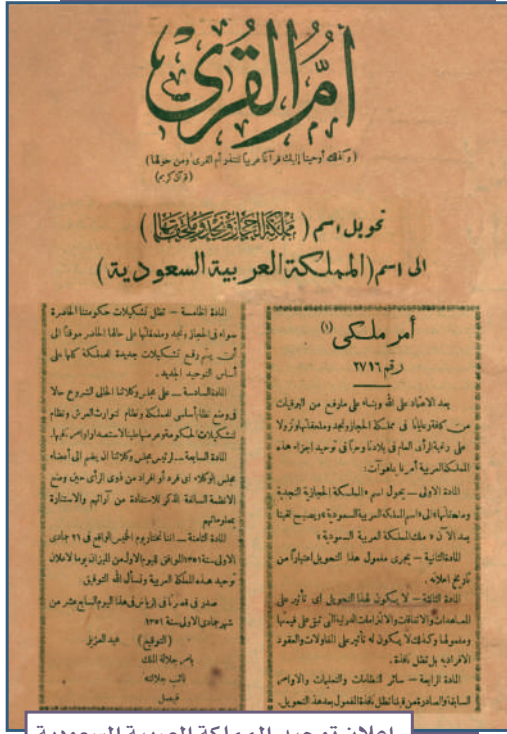 أم القرى
(وكذلك أوحينا إليك قرآنا عربيا لتنذر أم القرى ومن حولها)
(قرآن كريم)
تحويل اسم (مملكة الحجاز ونجد وملحقاتها)
الى اسم (المملكة العربية السعودية)
أمر ملكي (١)
رقم ٢٧١٦
بعد الاعتماد على الله وبناء على مارفع من البرقيات
من كافة رعايانا في مملكة الحجاز ونجد وملحقاتها ونزولا
على رغبة الرأى العام في بلادنا وحبا في توحيد اجزاء هذه
المملكة العربية أمرنا بما هو آت:
المادة الاولى – يحول اسم «المملكة الحجازية النجدية
وملحقاتها» الى اسم «المملكة العربية السعودية» ويصبح لقبنا
بعد الآن «ملك المملكة العربية السعودية»
المادة الثانية – يجرى مفعول هذا التحويل اعتبارا من
تاريخ اعلانه.
المادة الثالثة – لا يكون لهذا التحويل أى تأثير على
المعاهدات والاتفاقات والالتزامات الدولية التى تبقى على قيمتها
ومفعولها وكذلك لا يكون له تأثير على المقاولات والعقود
الافرادية بل تظل نافذة.
المادة الرابعة – سائر النظامات والتعليمات والاوامر
السابقة والصادرة من قبلنا تظل نافذة المفعول بعد هذا التحويل.
المادة الخامسة – تظل تشكيلات حكومتنا الحاضرة
سواء في الحجاز ونجد وملحقاتها على حالها الحاضر موقتا الى
أن يتم وضع تشكيلات جديدة للمملكة كلها على
أساس التوحيد الجديد.
المادة السادسة – على مجلس وكلائنا الحالى الشروع حالا
في وضع نظام أساسى للمملكة ونظام لتوارث العرش ونظام
لتشكيلات الحكومة وعرضها علينا لاستصدار اوامرنا فيها.
المادة السابعة – لرئيس مجلس وكلائنا ان يضم الى أعضاء
مجلس الوكلاء اى فرد أو افراد من ذوى الرأى حين وضع
الانظمة السالفة الذكر للاستفادة من آرائهم والاستنارة
بمعلوماتهم
المادة الثامنة – اننا نختار يوم الخميس الواقع في ٢١ جمادى
الاولى سنة ١٣٥١ الموافق لليوم الاول من الميزان يوما لاعلان
توحيد هذه المملكة العربية ونسأل الله التوفيق
صدر في قصرنا في الرياض في هذا اليوم السابع عشر من
شهر جمادى الاولى سنة ١٣٥١
(التوقيع) عبد العزيز
بامر جلالة الملك
نائب جلالته
فيصل
إعلان توحيد المملكة العربية السعودية